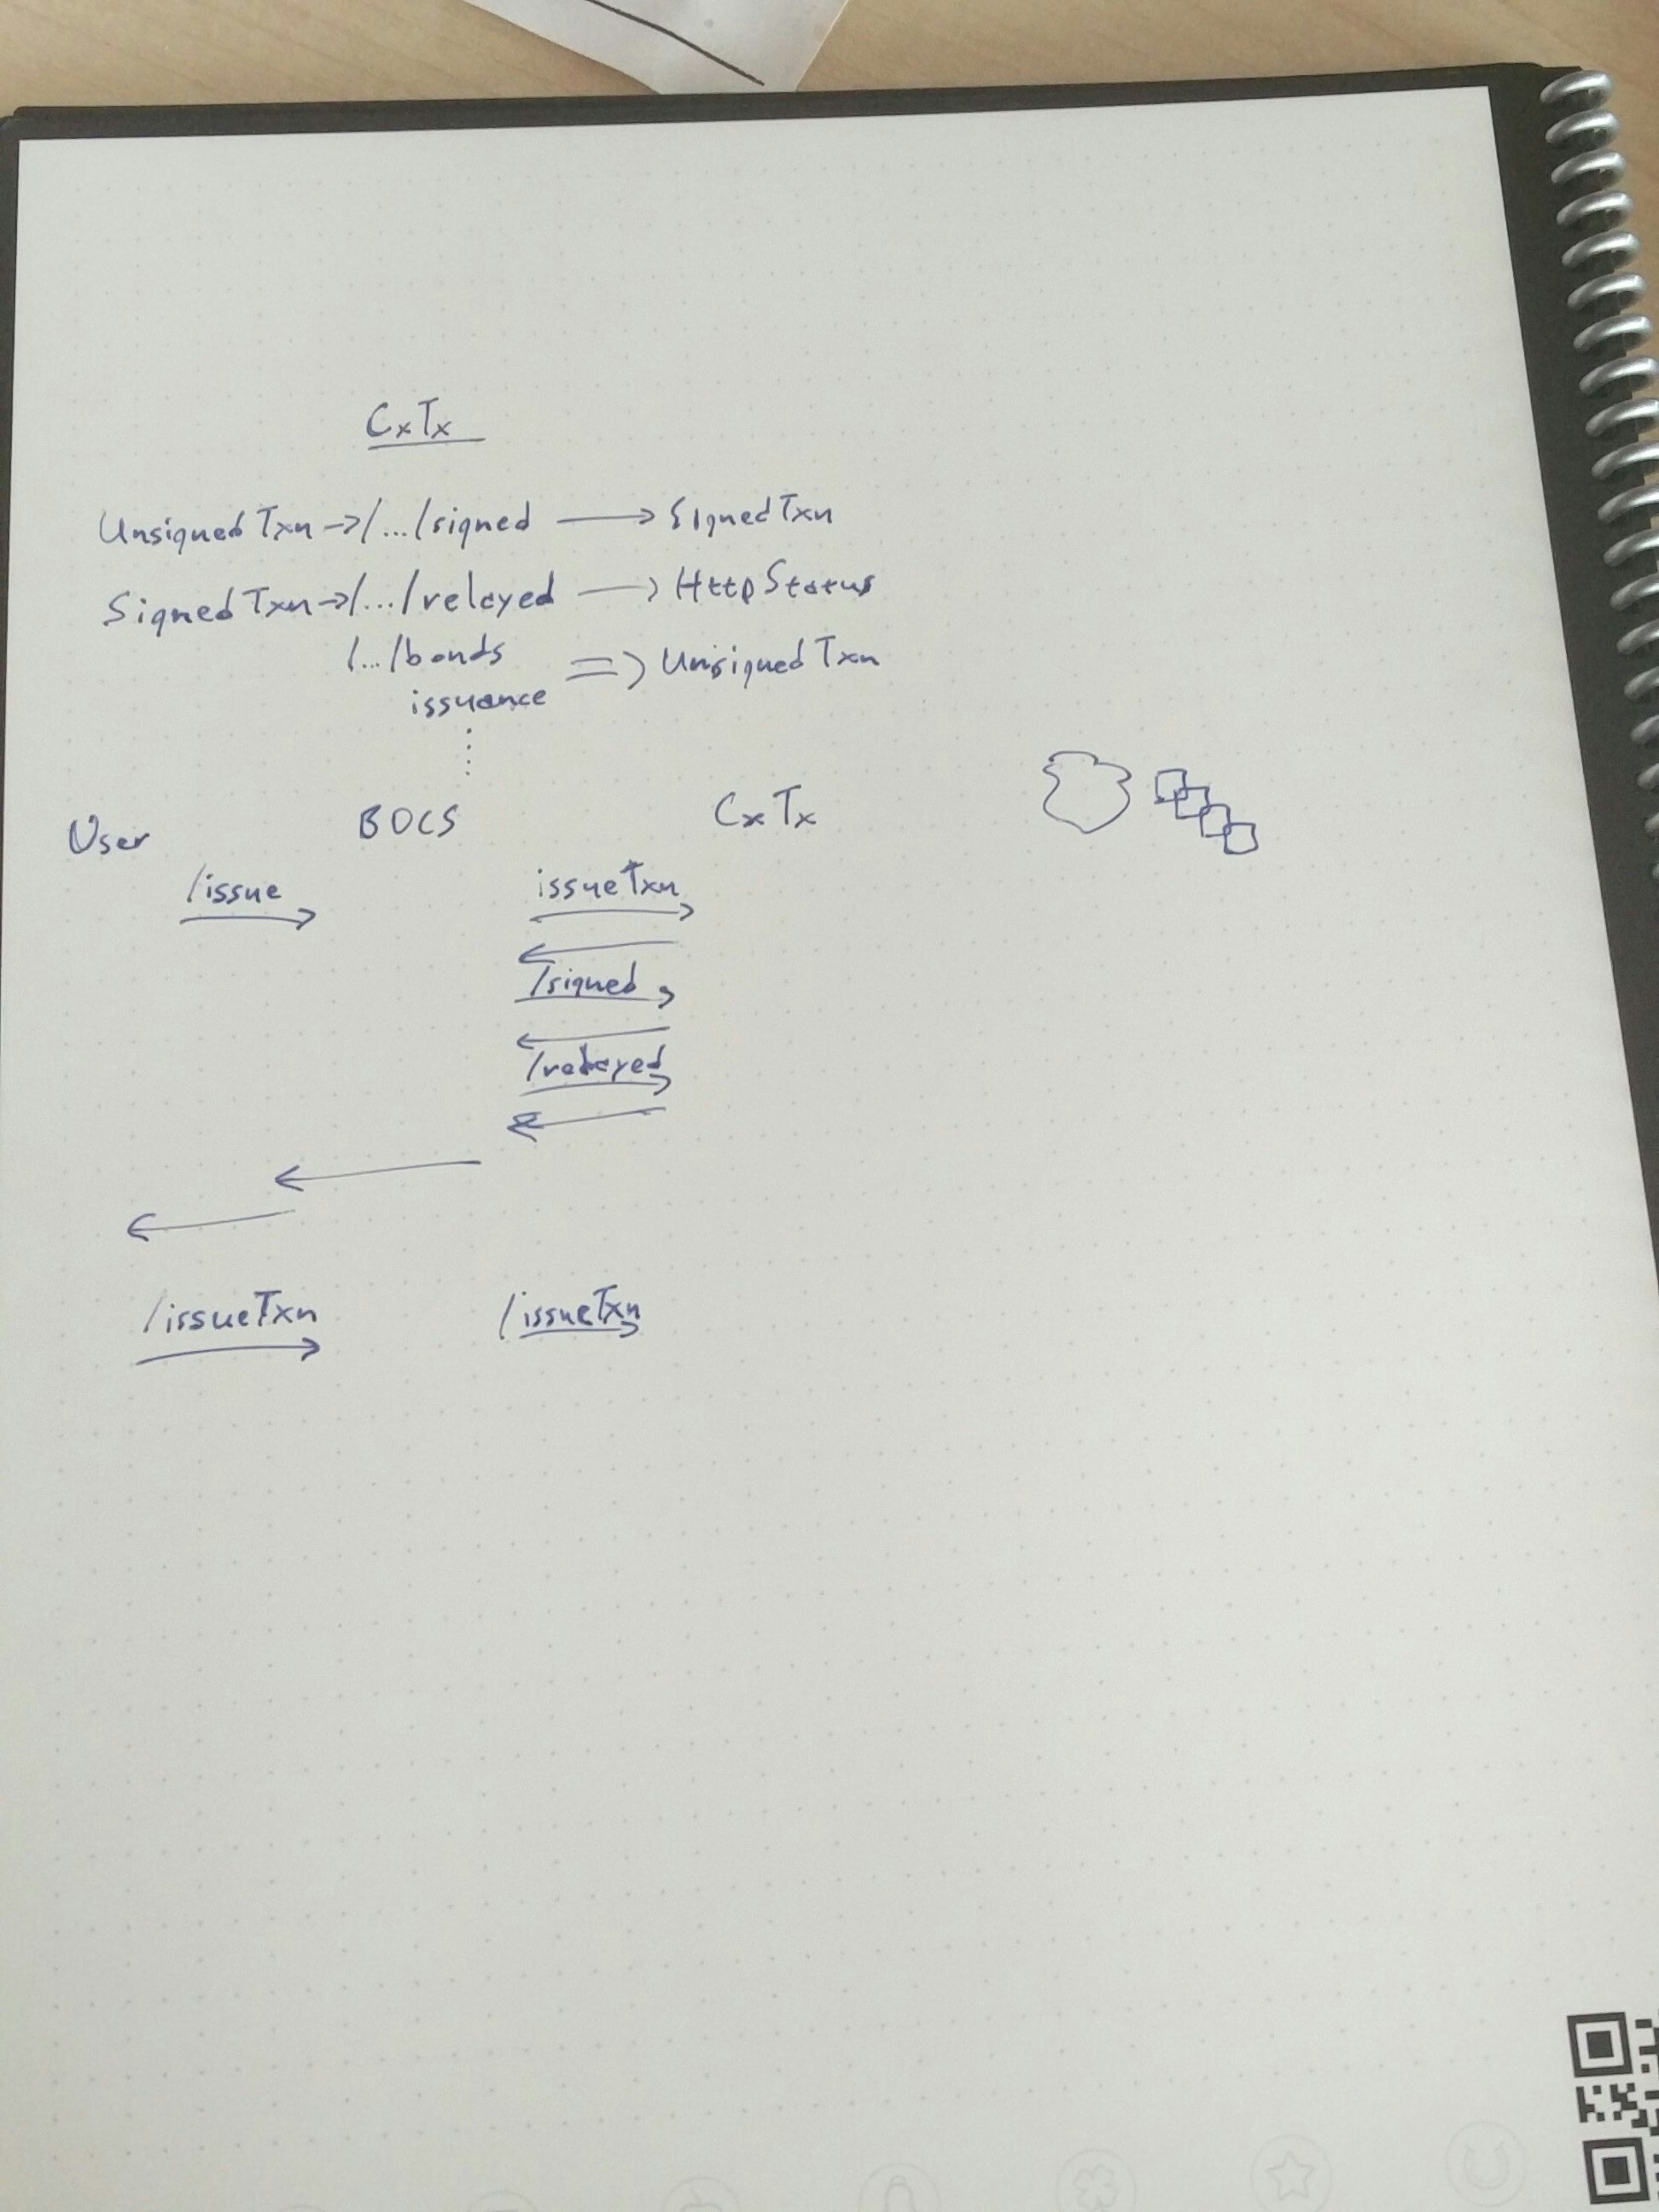 CxTx
UnsignedTxn -> /.../signed —> SignedTxn
SignedTxn -> /.../relayed —> HttpStatus
/.../bonds => UnsignedTxn
issuance
User BOCS CxTx
/issue issueTxn
/signed
/relayed
/issueTxn /issueTxn